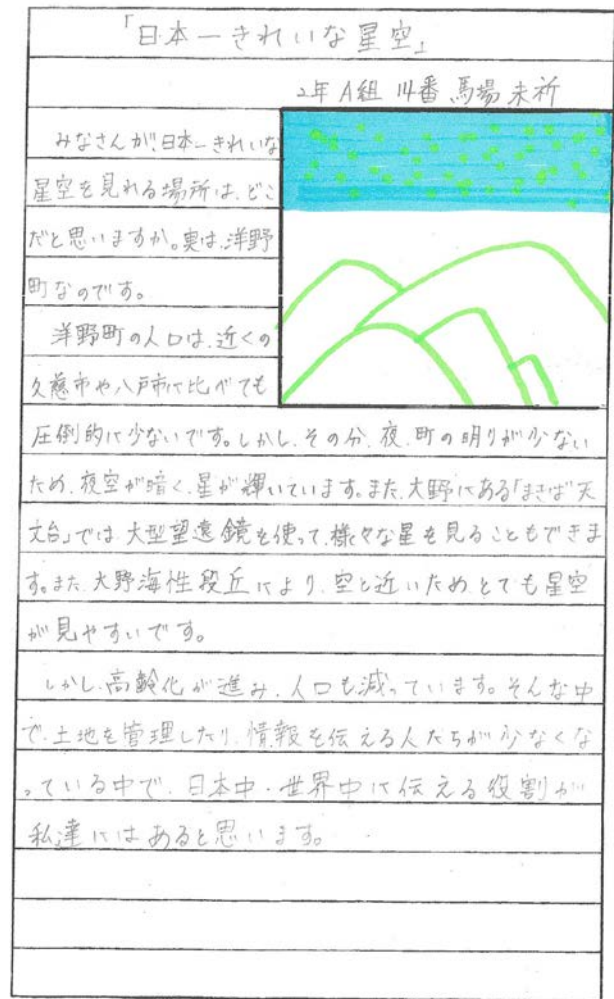 「日本一きれいな星空」
2年 A組 14番 馬場 未祈
みなさんが、日本一きれいな
星空を見れる場所は、どこ
だと思いますか。実は、洋野
町なのです。
洋野町の人口は、近くの
久慈市や八戸市に比べても
圧倒的に少ないです。しかし、その分、夜、町の明りが少ない
ため、夜空が暗く、星が輝いています。また、大野にある「まきば天
文台」では、大型望遠鏡を使って、様々な星を見ることもできま
す。また、大野海性段丘により、空と近いため、とても星空
が見やすいです。
しかし、高齢化が進み、人口も減っています。そんな中
で、土地を管理したり、情報を伝える人たちが少なくな
っている中で、日本中・世界中に伝える役割が
私達にはあると思います。